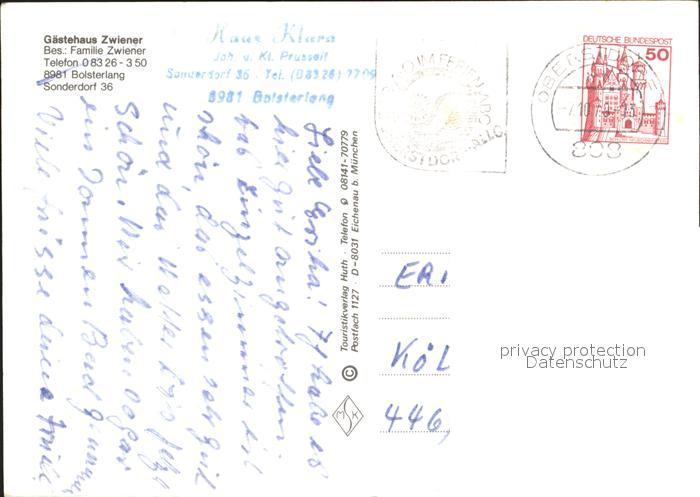 Gästehaus Zwiener
Bes.: Familie Zwiener
Telefon 0 83 26 - 3 50
8981 Bolsterlang
Sonderdorf 36
Haus Klara
Joh. u. Kl. Prusseit
Sonderdorf 36 · Tel. (08326) 7709
8981 Bolsterlang
DEUTSCHE BUNDESPOST
50
Liebe Erika! Ich habe es
hier gut angetroffen.
das Einzelzimmer ist
schön, das essen sehr gut
und das Wetter ist jetzt
schön. Wir haben sogar
ein Tannen Bad genommen
Viele Grüsse deine
Touristikverlag Huth · Telefon 08141-70779
Postfach 1127 · D-8031 Eichenau b. München
©
MSK
ERI
KÖL
446
privacy protection
Datenschutz